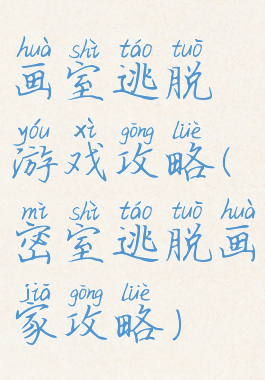 huà shì táo tuō
画室逃脱
yóu xì gōng lüè
游戏攻略(
mì shì táo tuō huà
密室逃脱画
jiā gōng lüè
家攻略)